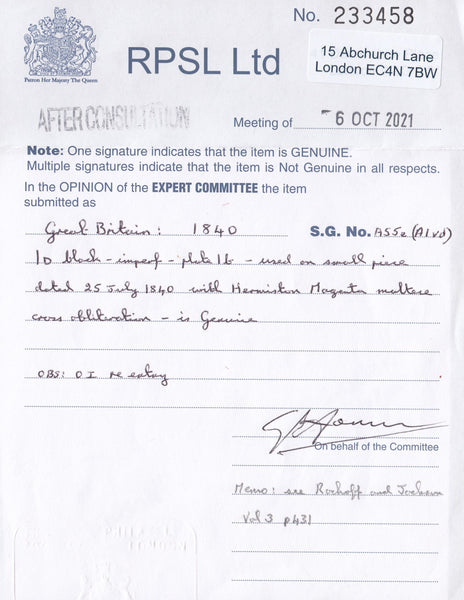 No. 233458
Patron Her Majesty The Queen
RPSL Ltd
15 Abchurch Lane
London EC4N 7BW
AFTER CONSULTATION
Meeting of - 6 OCT 2021
Note: One signature indicates that the item is GENUINE.
Multiple signatures indicate that the item is Not Genuine in all respects.
In the OPINION of the EXPERT COMMITTEE the item
submitted as
Great Britain: 1840 S.G. No. AS5e (A1vd)
1d black - imperf - plate 1b - used on small piece
dated 25 July 1840 with Hermiston Magenta maltese
cross obliteration - is Genuine
OBS: O I re entry
On behalf of the Committee
Memo: see Rockoff and Jackson
Vol 3 p431
LONDON